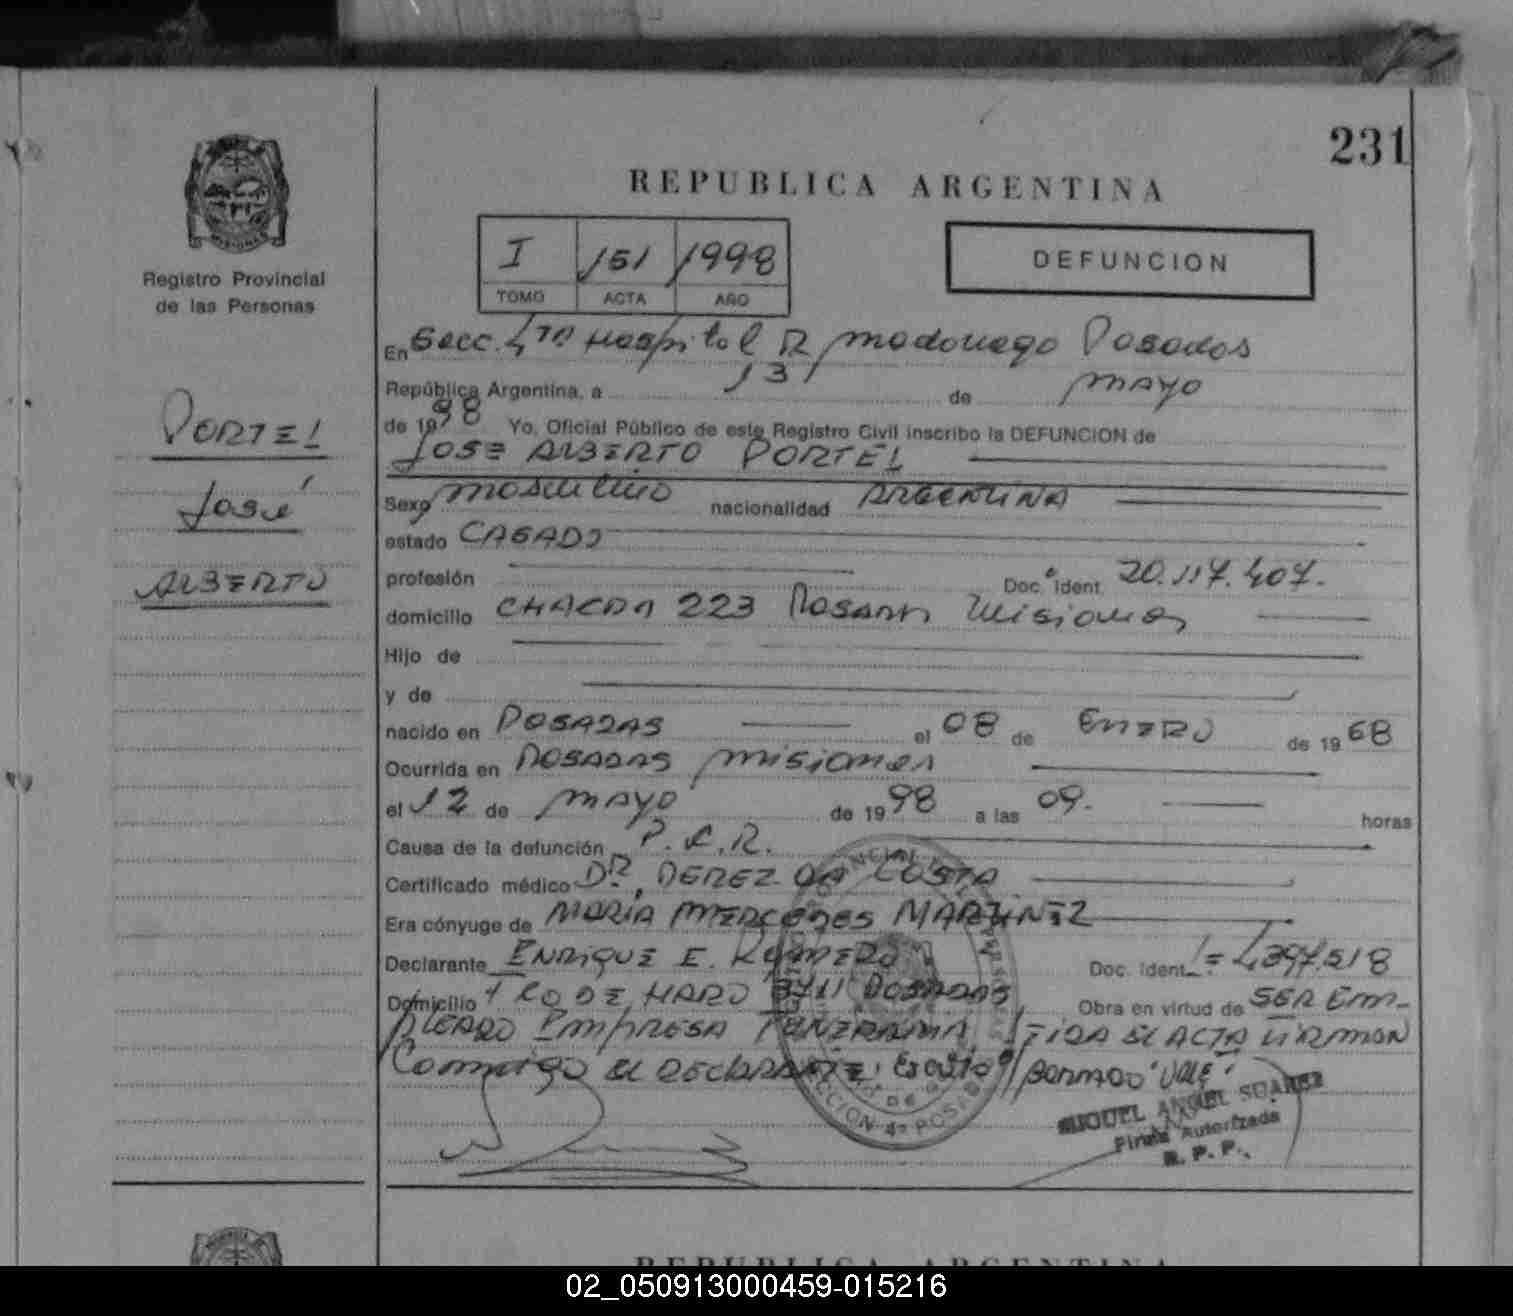 231
REPUBLICA ARGENTINA
Registro Provincial
de las Personas
I 151 1998
TOMO ACTA AÑO
DEFUNCION
PORTEL
José
ALBERTO
En Secc. 4ta Hospital R Madariaga Posadas
República Argentina, a 13 de MAYO
de 1998 Yo, Oficial Público de este Registro Civil inscribo la DEFUNCION de
JOSE ALBERTO PORTEL
Sexo masculino nacionalidad ARGENTINA
estado CASADO
profesión Doc. Ident. 20.117.407.
domicilio CHACRA 223 Posadas Misiones
Hijo de
y de
nacido en POSADAS el 08 de ENERO de 1968
Ocurrida en POSADAS misiones
el 12 de MAYO de 1998 a las 09. horas
Causa de la defunción P.C.R.
Certificado médico DR. PEREZ DA COSTA
Era cónyuge de MARIA MERCEDES MARTINEZ
Declarante ENRIQUE E. ROMERO Doc. Ident. 4.397.518
Domicilio DE HARO POSADAS Obra en virtud de SER EM-
PLEADO EMPRESA FUNERARIA LEIDA EL ACTA FIRMAN
Conmigo EL DECLARANTE: Escrito BORRADO "VALE"
SECCION 4ª POSADAS
MIGUEL ANGEL SUAREZ
Firma Autorizada
R. P. P.
REPUBLICA ARGENTINA
02_050913000459-015216